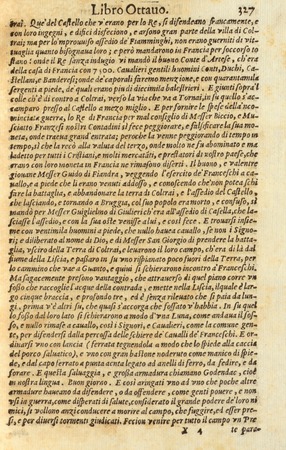 Libro Ottauo. 327
trai. Que'del Castello che v'erano per lo Re, si difendeano francamente, e
con loro ingegni, e difici disfeciono, e arsono gran parte della villa di Col-
trai; ma per lo improuiso assedio di Fiamminghi, non erano guerniti di vit-
tuaglia quanto bisognaua loro; e però mandarono in Francia per soccorso to
stano: onde il Re sanza indugio vi mandò il buono Conte d'Artese, e
della casa di Francia con 7500. Caualieri gentili huomini, Conti, Duchi, Ca-
stellani, e Banderesi; onde de' caporali faremo menzione, e con quarantamila
sergenti a piede, de' quali erano più di diecimila balestrieri. E giunti sul
colle ch'è di contro a Coltrai, verso la via che va a Tornai, in su quello s'ac-
camparo presso al Castello a mezo miglio. E per fornire le spese della
guerra, lo Re di Francia per mal consiglio di Messer Biccio, e Mu-
sciatto Franzesi nostri Contadini si fece peggiorare, e falsificare la sua mone-
ta, onde traeua grand entrata; peroche la venne peggiorando di tempo in
tempo, sì che la recò alla valuta del terzo, onde molto ne fu abominato e ma-
ladetto per tutti i Cristiani, e molti mercatanti, e prestatori di nostro paese, che
erano con loro moneta in Francia ne rimasono diserti. Il buono, e valentre
giouane Messer Guido di Fiandra, veggendo l'esercito de' Franceschi a ca-
uallo, a piede che li erano venuti addosso, e conoscendo che non potea schi
fare la battaglia, e abbandonare la terra di Coltrai, e l'assedio del Castello,
che lasciando, e tornando a Bruggia, col suo popolo era morto, e confuso, si
mandò per Messer Guiglielmo di Giulieri ch'era all'assedio di Casella, che la-
sciasse l'assedio, e con la sua oste venisse a lui, e così fece. E trouarsi insie-
me con ventimila huomini a piede, che nullo hauea cauallo, se non i Signo-
ri; e diliberato al nome di Dio, e di Messer San Giorgio di prendere la batta-
glia, vscirono della Terra di Coltrai, e leuarono il loro campo, ch'era di là dal
fiume della Liscia, e passaro in vno rispianato poco fuori della Terra, per
lo cammino che va a Guanto, e quiui si schierarono incontro a' Franceschi.
Ma sagacemente presono vantaggio, che attrauerso di quel piano corre vn
fosso che raccoglie l'acqua della contrada, e mette nella Liscia, il quale è lar-
go cinque braccia, e profondo tre, ed è senza rileuato che si paia da lun-
gi, prima v'è altri sù, che quasi s'accorga che fossato v'habbia. In su quel
lo fosso dal loro lato si schierarono a modo d'vna Luna, come andaua il fos-
so, e nullo rimase a cauallo, così i Signori, e Caualieri, come la comune gen-
te, per difendersi dalla percossa delle schiere de' Caualli de' Franceschi. E or-
dinarsi vno con lancia (ferrata tegnendola a modo che si tiene alla caccia
del porco saluatico), e vno con gran bastone noderuto come manico di spie-
de, e dal capo ferrato a punta acuta legato ad anelli di ferro, da fedire, e da
forare. E questa saluaggia, e grossa armadura chiamano Godendac, cioè
in nostra lingua, Buon giorno. E così aringati vno ad vno che poche altre
armadure haueano da difendere, o da offendere, come genti pouere, e non v-
si in guerra, come disperati di salute, considerando il grande podere de' loro ni
mici, si vollono anzi conducere a morire al campo, che fuggire, ed esser pre-
si, e per diuersi tormenti giudicati. Fecion venire per tutto il campo vn Pre
X 4 te para-